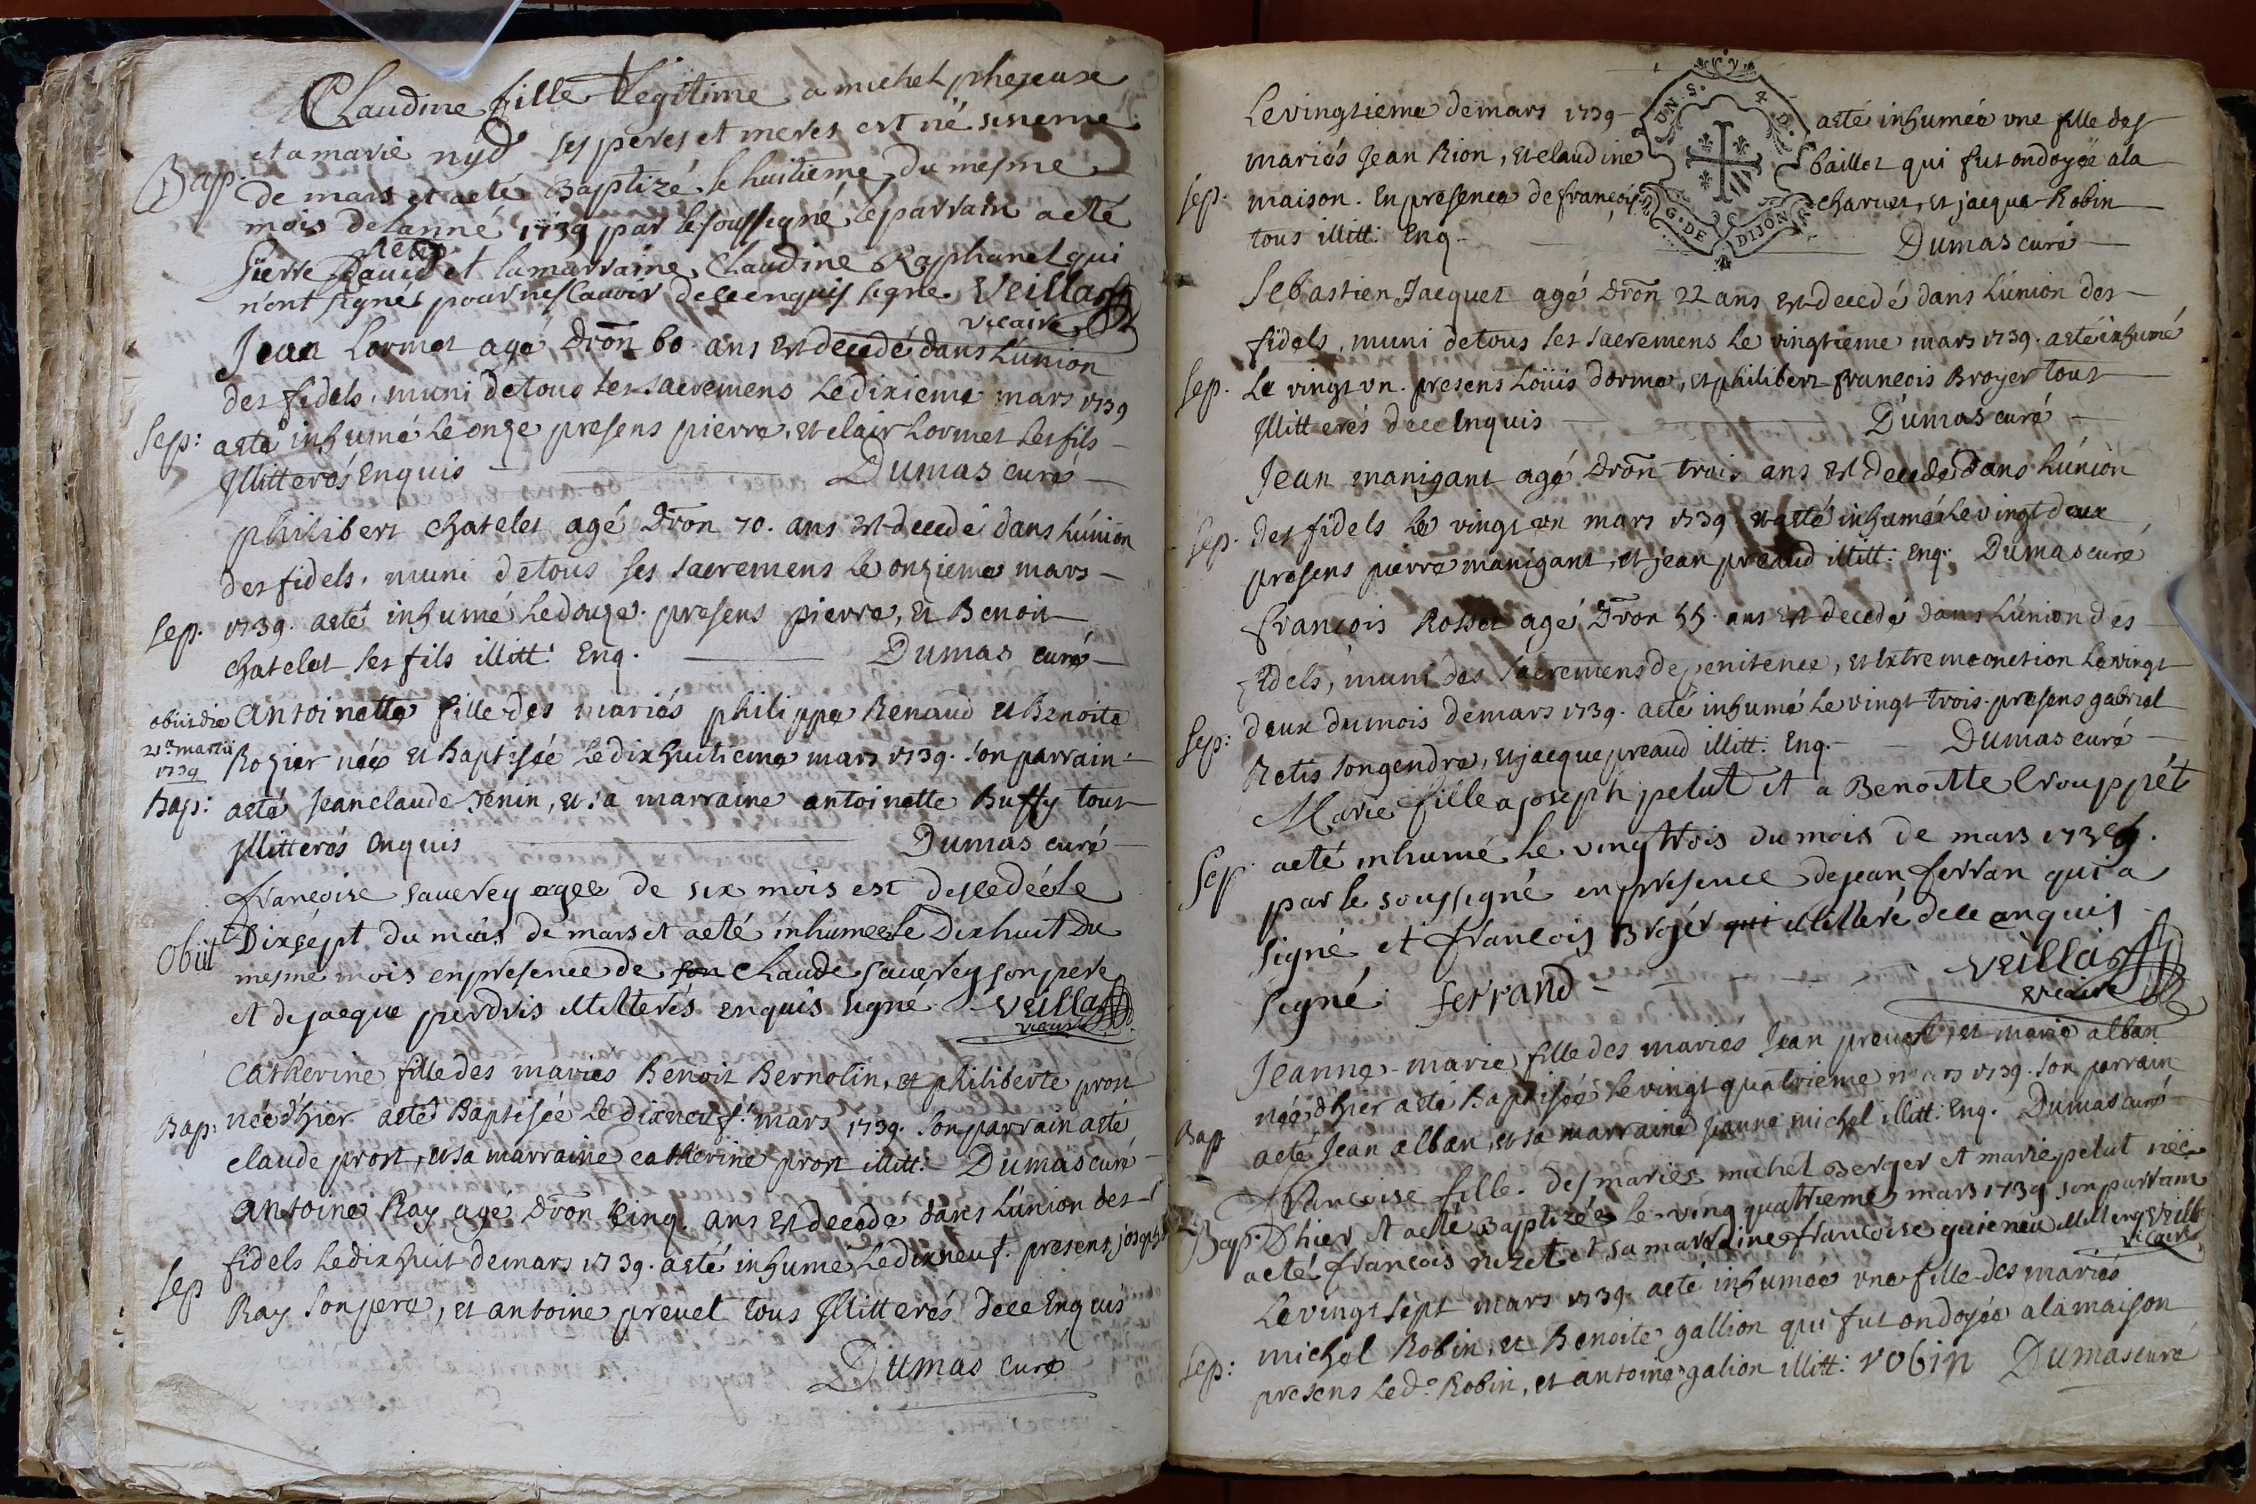 Claudine fille Legitime a michel
et a marie nyd ses peres et meres est né
Bap.
de mars et aeté Baptizé le huitieme du mesme
mois delanné 1739 par le soussigné le parrain aeté
pierre et la marraine Claudine Raphanel qui
n'ont signés pour ne scauoir dece enquis signe Veillas
vicaire
Jean Lormet agé Dron 60 ans Est decedé dans L'union
des fidels, muni detous ses sacremens Le dixieme mars 1739
Sep:
aeté inhumé Le onze presens pierre, et clair Lormet ses fils
Illitterés Enquis Dumas curé
philibert chatelet agé Dron 70. ans Est decedé dans L'union
des fidels, muni detous ses sacremens Le onzieme mars
Sep.
1739. aeté inhumé Le douze. presens pierre, et Benoit
chatelet ses fils illitt: Enq. Dumas curé
obiit die
21a martii
1739
antoinette fille des mariés philippe Renaud et Benoite
Rozier née et Baptisée Le dixhuitieme mars 1739. son parrain
Bap:
aeté Jeanclaude Jenin, et sa marraine antoinette Buffy tous
Illitterés Enquis Dumas curé
françoise sauerey agee de six mois est decedéé le
Obiit
Dixsept du mois de mars et aeté inhumeé le Dixhuit Du
mesme mois en presence de son Claude sauerey son pere
et de jacque perdris illitterés enquis signé Veillas
vicaire
Catherine fille des mariés Benoit Bernolin, et philiberte prost
Bap:
née d'hier aeté Baptisée Le dixneuf. mars 1739. son parrain aeté
claude prost, et sa marraine catherine prost illitt: Dumas curé
antoine Ray agé Dron Cinq ans Est decedé dans L'union des
fidels Le dixhuit de mars 1739. aeté inhumé Le dixneuf. presens joseph
Sep
Ray son pere, et antoine preuel tous Illitterés dece Enquis
Dumas curé
Le vingtieme de mars 1739 aeté inhumée vne fille des
mariés Jean Rion, et claudine baillet qui fut ondoyée a la
Sep.
maison. En presence de françois charuet, et jacque Robin
tous illitt: Enq. Dumas curé
G. DE DIJON
Sebastien Jacquet agé Dron 22 ans Est decedé dans L'union des
fidels, muni detous ses sacremens Le vingtieme mars 1739. aeté inhumé
Sep.
Le vingt vn. presens Loüis dorme, et philibert francois Broyer tous
Illitterés dece Enquis Dumas curé
Jean manigant agé Dron trois ans Est decedé dans L'union
Sep.
des fidels Le vingt vn mars 1739 et aeté inhumé Le vingt deux
presens pierre manigant, et jean preaud illitt: Enq. Dumas curé
francois Rosset agé Dron 55. ans Est decedé dans L'union des
fidels, muni des sacremens de penitence, et Extremeonction Le vingt
Sep:
deux du mois de mars 1739. aeté inhumé Le vingt trois. presens gabriel
Retis son gendre, et jacque preaud illitt: Enq. Dumas curé
Marie fille a joseph pelut et a Benoitte Crouppét
Sep
aeté inhumé Le vingttrois du mois de mars 1739.
par le soussigné en presence de jean ferran qui a
signé et francois Broyer qui illitteré dece enquis
signé ferrand Veillas
vicaire
Jeanne-marie fille des mariés Jean preuost, et marie alban
née d'hier aeté Baptisée Le vingt quatrieme mars 1739. son parrain
Bap
aeté Jean alban, et sa marraine Jeanne michel illitt: Enq. Dumas curé
francoise fille des mariés michel Berger et marie pelut née
Bap.
Dhier et aeté Baptizée le vingquatrieme mars 1739 son parrain
aeté francois nizet et sa marraine francoise illitt enq Veillas
vicaire
Le vingt sept mars 1739. aeté inhumée vne fille des mariés
michel Robin, et Benoite gallion qui fut ondoyée a la maison
Sep:
presens Led. Robin, et antoine galion illitt: robin Dumas curé